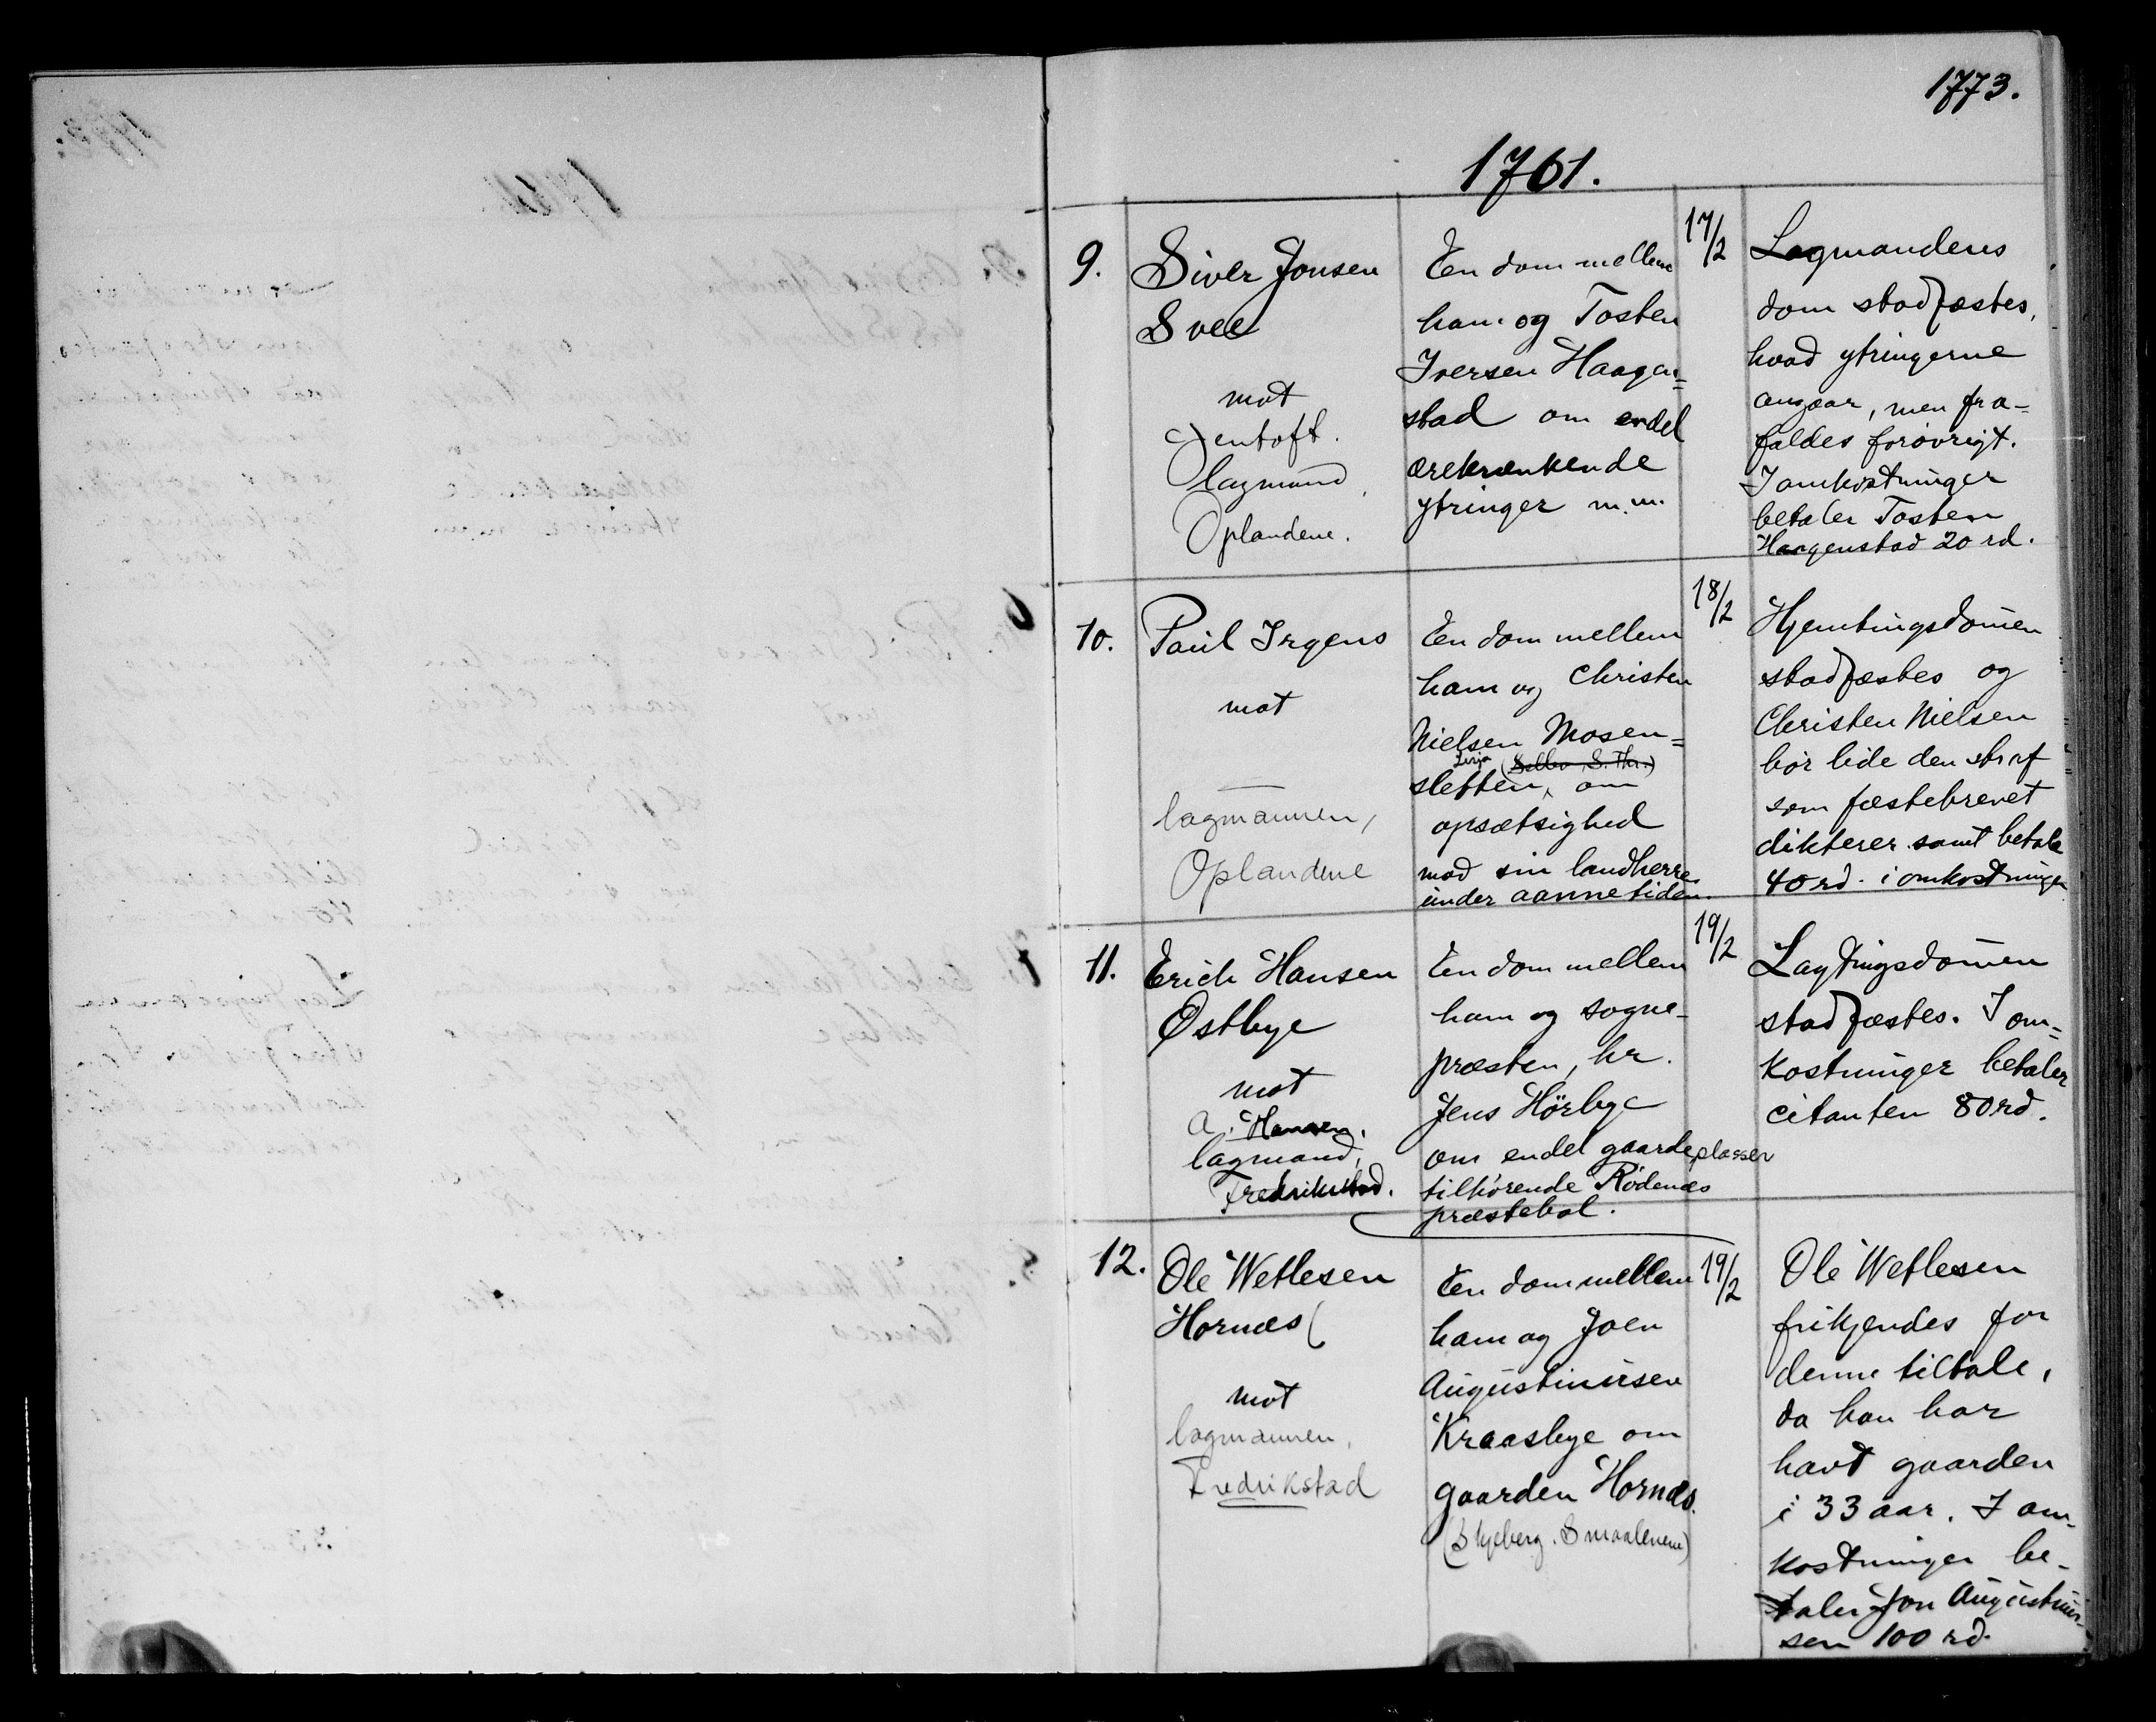 1773.
1761.
9.
Siver Jonsen
Svee
mot
Jentoft.
lagmand,
Oplandene.
En dom mellem
ham og Tosten
Iversen Haagen=
stad om endel
ærekrænkende
ytringer m.m.
17/2
Lagmandens
dom stadfæstes,
hvad ytringerne
angaar, men fra=
faldes forøvrigt.
I omkostninger
betaler Tosten
Haagenstad 20 rd.
10.
Paul Irgens
mot
lagmannen,
Oplandene
En dom mellem
ham og Christen
Nielsen Mosen=
Linja (Selbo, S. Thr.)
sletten, om
opsætsighed
mod sin landherre
under aannetiden.
18/2
Hjemtingsdommen
stadfæstes og
Christen Nielsen
bør lide den straf
som fæstebrevet
dikterer samt betale
40 rd. i omkostninger
11.
Erich Hansen
Østbye
mot
A. Hansen.
lagmand,
Fredrikstad.
En dom mellem
ham og sogne-
præsten, hr.
Jens Hørbye
om endel gaardeplasser
tilhørende Rødenæs
præstebol.
19/2
Lagtingsdommen
stadfæstes. I om=
kostninger betaler
citanten 80 rd.
12.
Ole Wetlesen
Hornæs (
mot
lagmannen,
Fredrikstad
En dom mellem
ham og Joen
Augustinusen
Kraasbye om
gaarden Hornæs.
(Skjeberg. Smaalenene)
19/2
Ole Wetlesen
frikjendes for
denne tiltale,
da han har
havt gaarden
i 33 aar. I om-
kostninger be-
taler Jon Augustinu-
sen 100 rd.